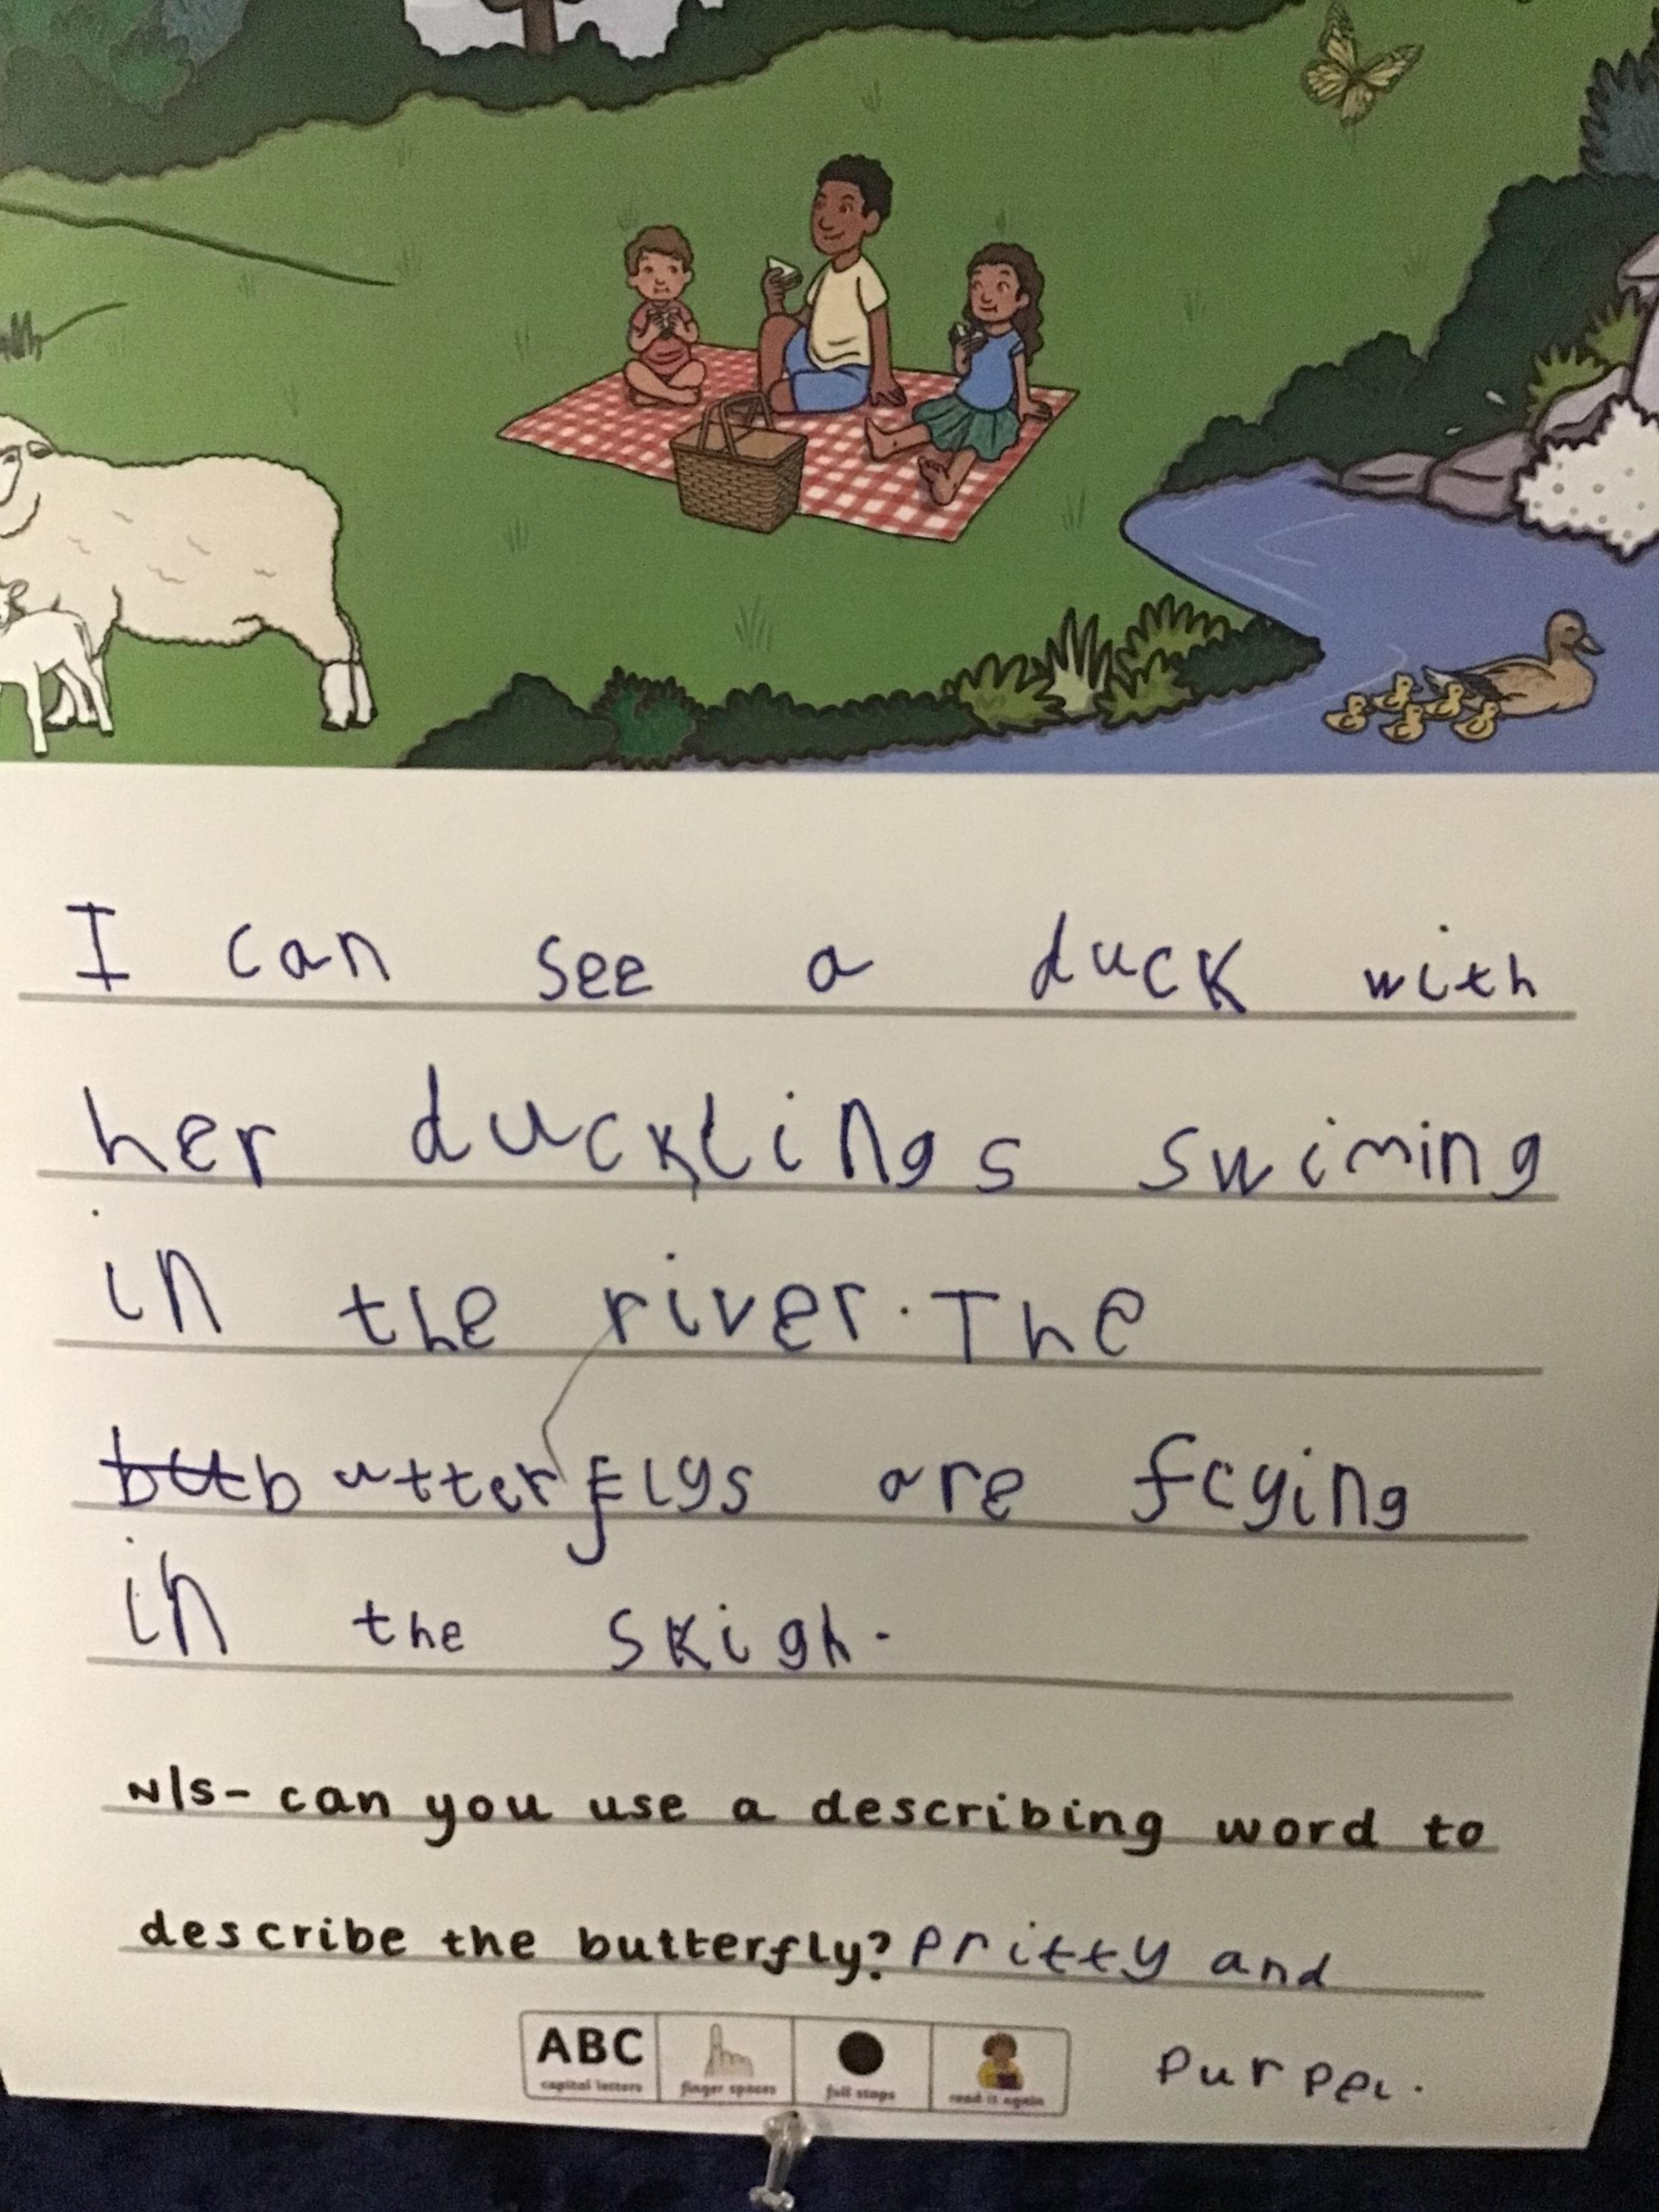 I can see a duck with
her ducklings swiming
in the river. The
but butterflys are flying
in the skigh.
N/S - can you use a describing word to
describe the butterfly? pritty and
purpel.
ABC
capital letters finger spaces full stops read it again